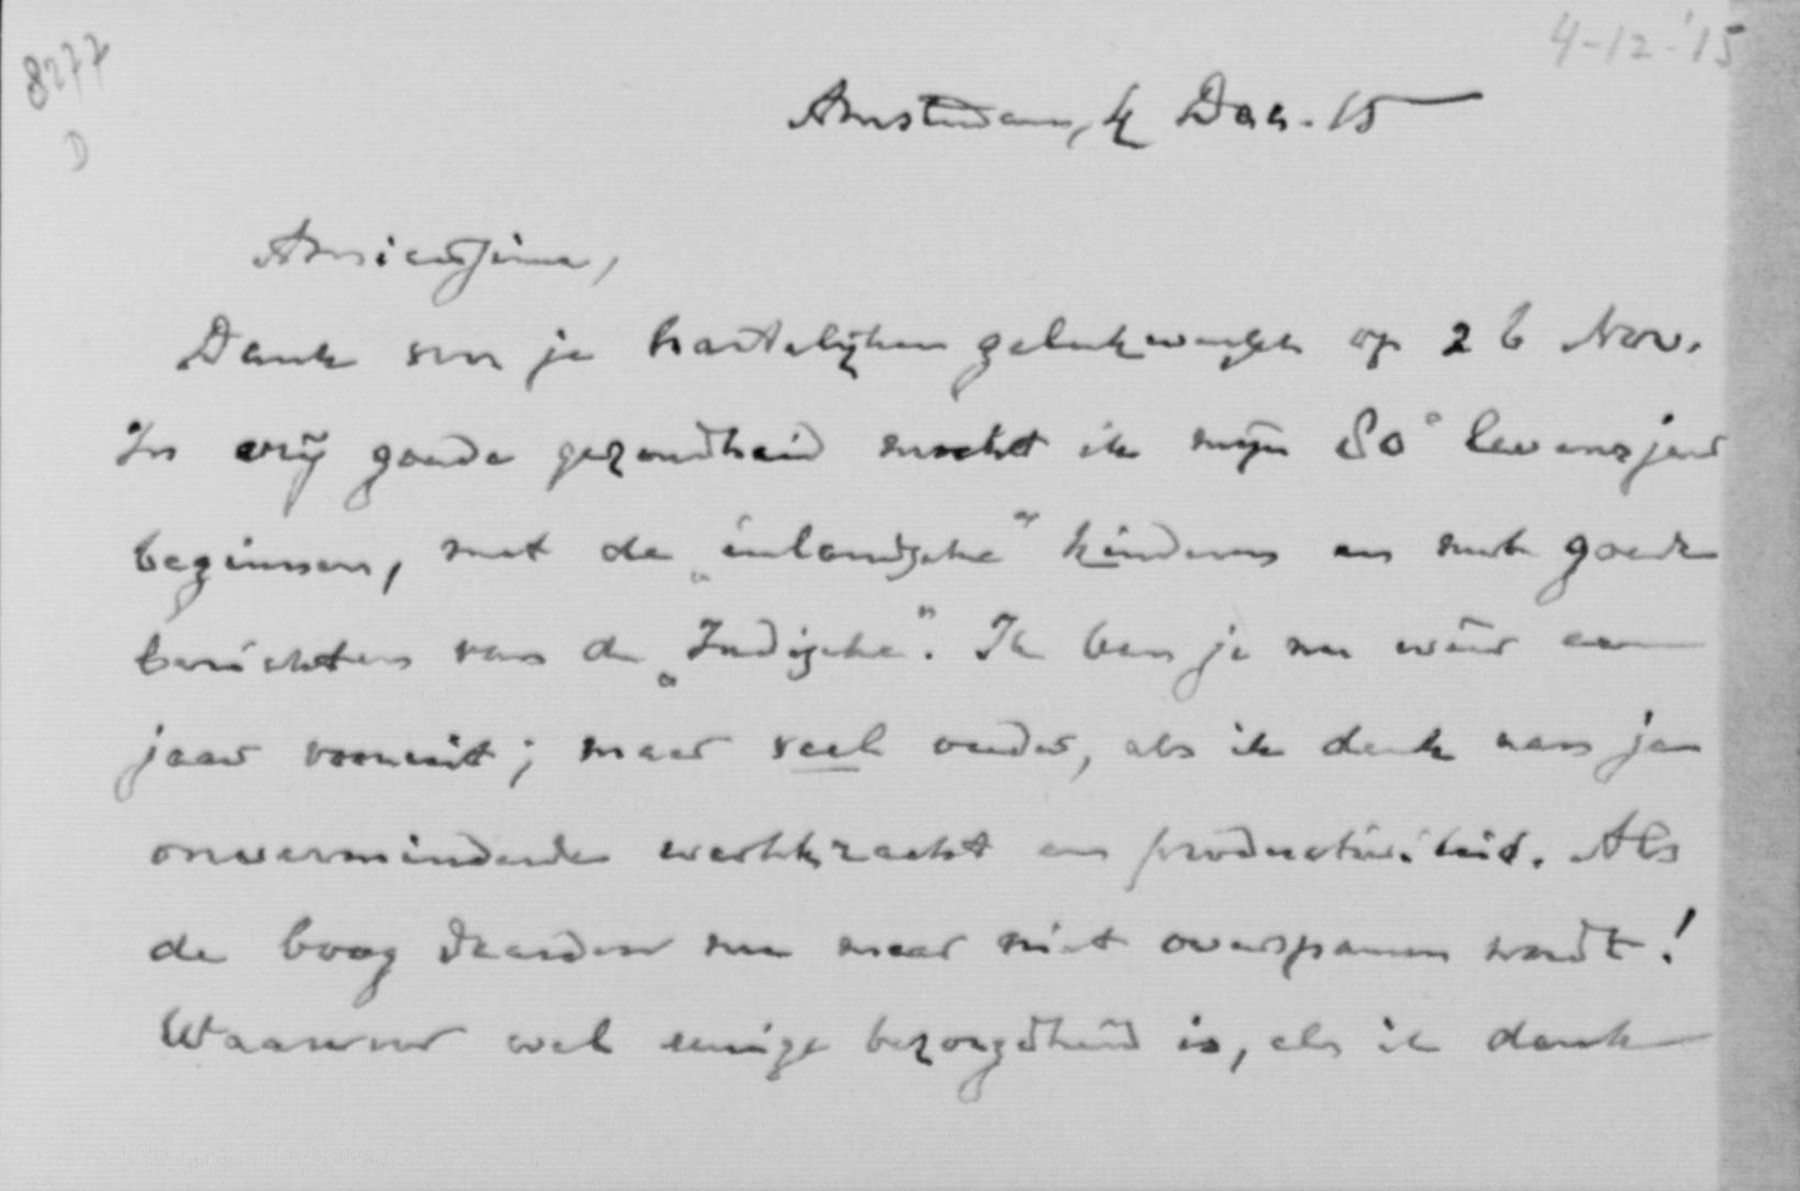 8277
D
4-12-'15
Amsterdam, 4 Dec. 15
Amicissime,
Dank voor je hartelijken gelukwensch op 26 Nov.
In vrij goede gezondheid mocht ik mijn 80e levensjaar
beginnen, met de „inlandsche” kinderen en met goede
berichten van de „Indische”. Ik ben je nu weer een
jaar vooruit; maar veel ouder, als ik denk aan je
onverminderde werkkracht en productiviteit. Als
de boog daardoor nu maar niet overspannen wordt!
Waarvoor wel eenige bezorgdheid is, als ik denk